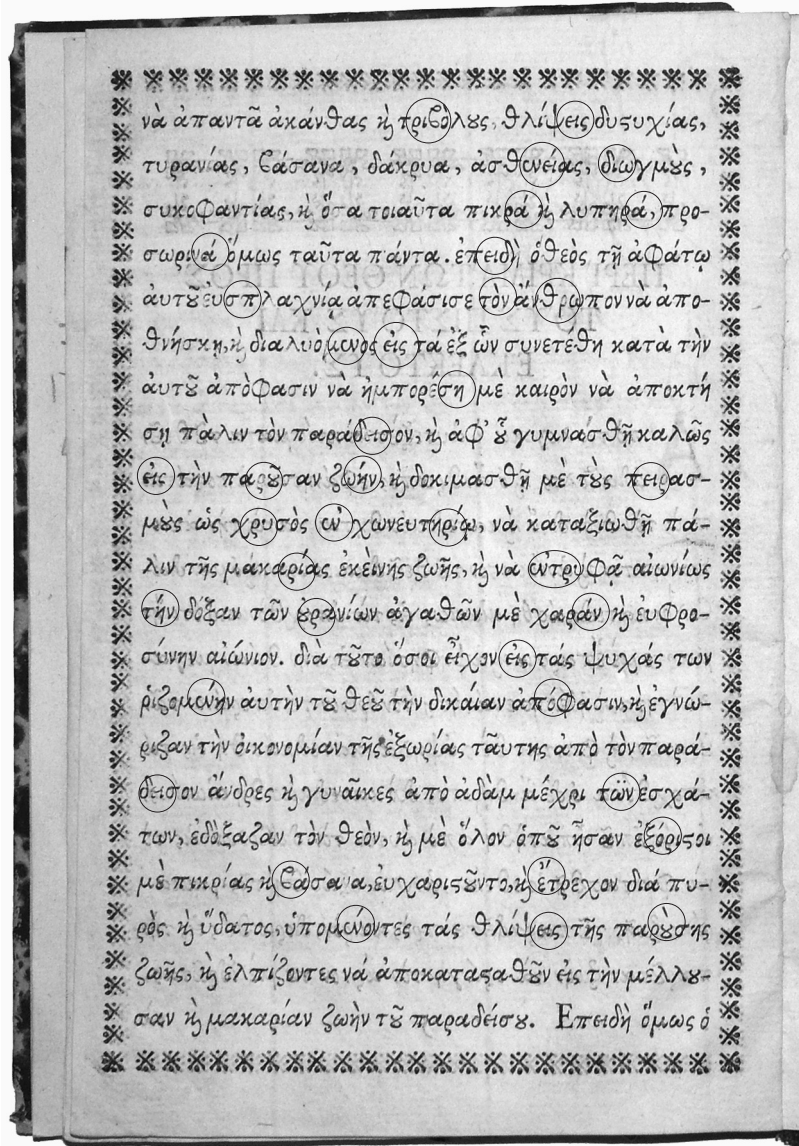 νὰ ἀπαντᾶ ἀκάνθας ϗ τριβόλους, θλίψεις δυςυχίας,
τυρανίας, βάσανα, δάκρυα, ἀσθενείας, διωγμοὺς,
συκοφαντίας, ϗ ὅσα τοιαῦτα πικρά ϗ λυπηρά, προ-
σωρινά ὅμως ταῦτα πάντα. ἐπειδὴ ὁ θεὸς τῇ ἀφάτῳ
ἀυτοῦ ἐυσπλαχνίᾳ ἀπεφάσισε τὸν ἄνθρωπον νὰ ἀπο-
θνήσκῃ, ϗ διαλυόμενος εἰς τά ἐξ ὧν συνετέθη κατὰ τὴν
ἀυτοῦ ἀπόφασιν νὰ ἠμπορέσῃ μὲ καιρὸν νὰ ἀποκτή
σῃ πάλιν τὸν παράδεισον, ϗ ἀφ' οὗ γυμνασθῇ καλῶς
εἰς τὴν παροῦσαν ζωήν, ϗ δοκιμασθῇ μὲ τοὺς πειρασ-
μοὺς ὡς χρυσὸς ἐν χωνευτηρίῳ, νὰ καταξιωθῇ πά-
λιν τῆς μακαρίας ἐκείνης ζωῆς, ϗ νὰ ἐντρυφᾷ αἰωνίως
τήν δόξαν τῶν οὐρανίων ἀγαθῶν μὲ χαράν ϗ ἐυφρο-
σύνην αἰώνιον. διὰ τοῦτο ὅσοι εἶχον εἰς τάς ψυχάς των
ῥιζομένην αὐτὴν τοῦ θεοῦ τὴν δικαίαν ἀπόφασιν, ϗ ἐγνώ-
ριζαν τὴν ὀικονομίαν τῆς ἐξωρίας ταύτης ἀπὸ τὸν παρά-
δεισον ἄνδρες ϗ γυναῖκες ἀπὸ ἀδὰμ μέχρι τῶν ἐσχά-
των, ἐδόξαζαν τὸν θεὸν, ϗ μὲ ὅλον ὁποῦ ἦσαν ἐξόριςοι
μὲ πικρίας ϗ βάσανα, ἐυχαριςοῦντο, ϗ ἔτρεχον διά πυ-
ρὸς ϗ ὕδατος, ὑπομένοντες τάς θλίψεις τῆς παρούσης
ζωῆς, ϗ ἐλπίζοντες νά ἀποκαταςαθοῦν εἰς τὴν μέλλου-
σαν ϗ μακαρίαν ζωὴν τοῦ παραδείσου. Επειδὴ ὅμως ὁ